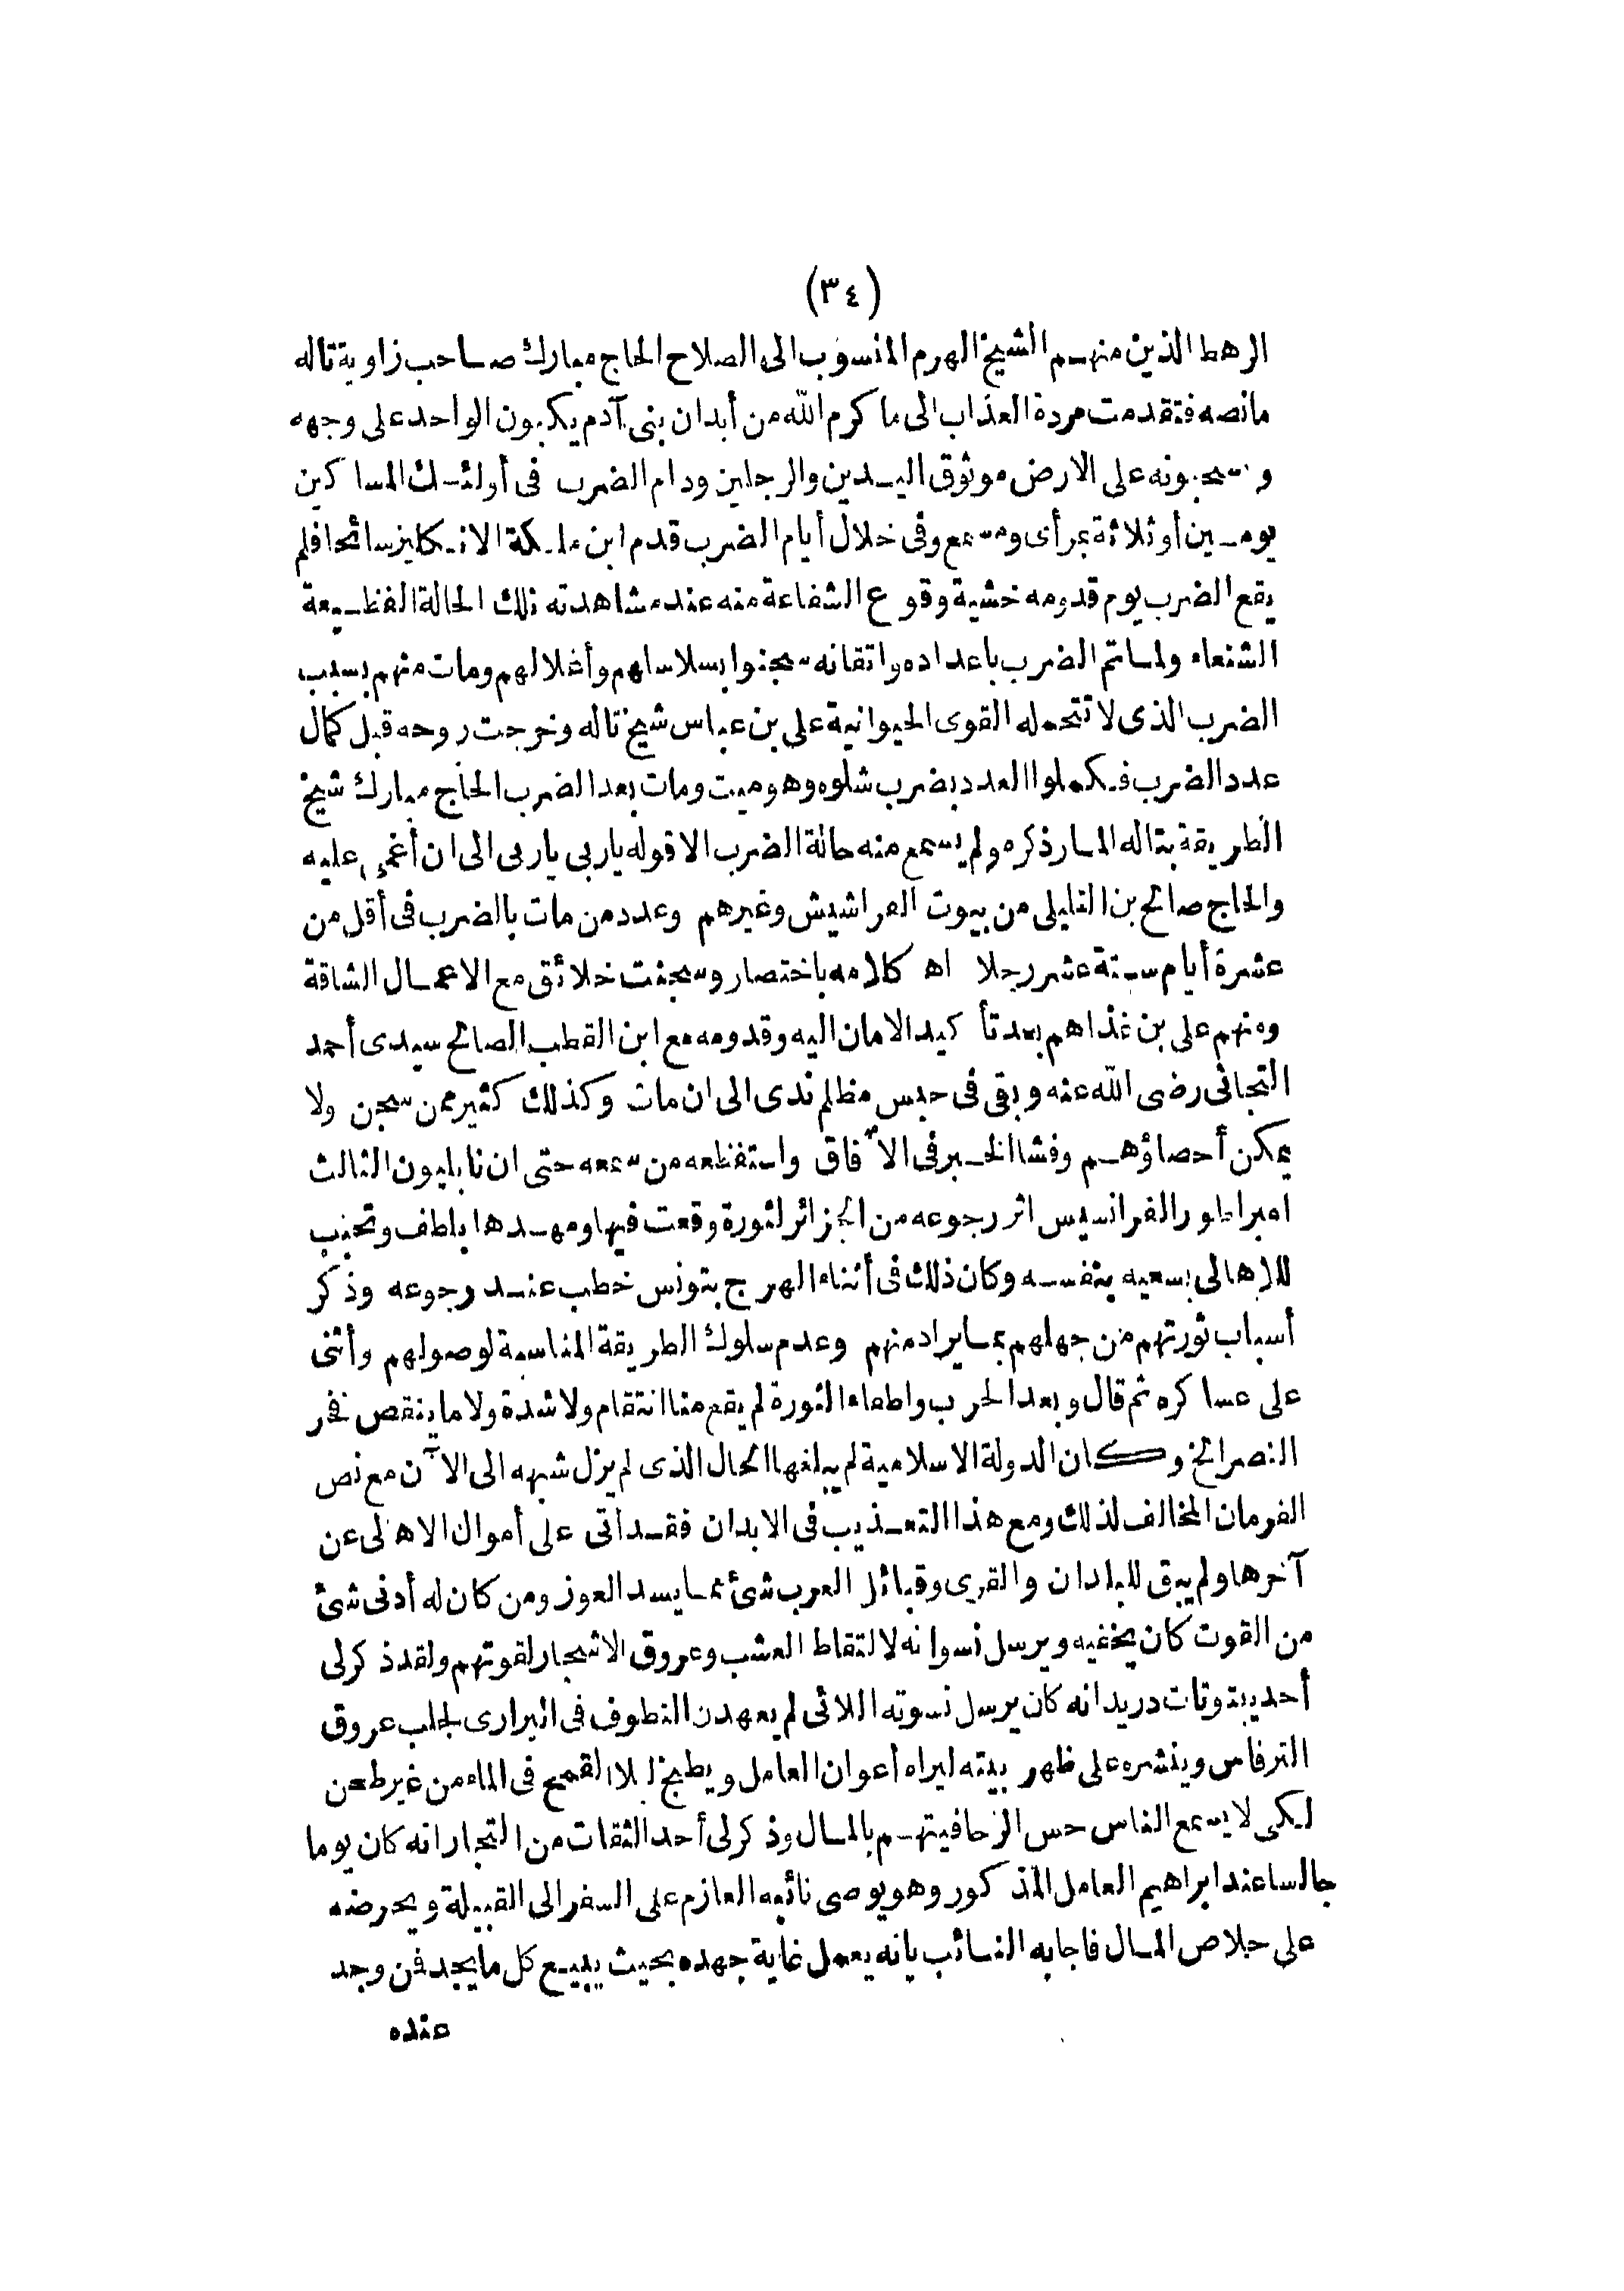 (٣٤)
الرهط الذين منهم الشيخ الهرم المنسوب الى الصلاح الحاج مبارك صاحب زاوية تاله
مانصه فتقدمت مردة العذاب الى ما كرم الله من أبدان بنى آدم يكبون الواحد على وجهه
ويسحبونه على الارض موثوق اليدين والرجلين ودام الضرب فى أولئك المساكين
يومين أو ثلاثة بمرأى ومسمع وفى خلال أيام الضرب قدم ابن ملكة الانكليز سائحا فلم
يقع الضرب يوم قدومه خشية وقوع الشفاعة منه عند مشاهدته ذلك الحالة الفظيعة
الشنعاء ولما تم الضرب باعداده واتقانه سجنوا بسلاسلهم وأغلالهم ومات منهم بسبب
الضرب الذى لا تتحمله القوى الحيوانية على بن عباس شيخ تاله وخرجت روحه قبل كمال
عدد الضرب فكملوا العدد بضرب شلوه وهو ميت ومات بعد الضرب الحاج مبارك شيخ
الطريقة بتاله المار ذكره ولم يسمع منه حالة الضرب الا قوله ياربى ياربى الى ان أغمى عليه
والحاج صالح بن الخليلى من بيوت الفراشيش وغيرهم وعدد من مات بالضرب فى أقل من
عشرة أيام ستة عشر رجلا اه كلامه باختصار وسجنت خلائق مع الاعمال الشاقة
ومنهم على بن غذاهم بعد تأكيد الامان اليه وقدومه مع ابن القطب الصالح سيدى أحمد
التجانى رضى الله عنه وبقى فى حبس مظلم ندى الى ان مات وكذلك كثير ممن سجن ولا
يمكن أحصاؤهم وفشا الخبر فى الآفاق واستفظعه من سمعه حتى ان نابليون الثالث
امبراطور الفرانسيس اثر رجوعه من الجزائر لثورة وقعت فيها ومهدها بلطف وتجنب
للاهالى بسعيه بنفسه وكان ذلك فى أثناء الهرج بتونس خطب عند رجوعه وذكر
أسباب ثورتهم من جهلهم بما يراد منهم وعدم سلوك الطريقة المناسبة لوصولهم وأثنى
على عساكره ثم قال وبعد الحرب واطفاء الثورة لم يقع منا انتقام ولا شدة ولا ما ينقص فخر
النصر الخ وكان الدولة الاسلامية لم يبلغها الحال الذى لم يزل شبهه الى الآن مع نص
الفرمان المخالف لذلك ومع هذا التعذيب فى الابدان فقد أتى على أموال الاهلى عن
آخرها ولم يبق للبلدان والقرى وقبائل العرب شئ مما يسد العوز ومن كان له أدنى شئ
من القوت كان يخفيه ويرسل نسوانه لالتقاط العشب وعروق الاشجار لقوتهم ولقد ذكر لى
أحد بيتوتات دريد انه كان يرسل نسوته اللائى لم يعهدن التطوف فى البرارى لجلب عروق
الترفاس وينشره على ظهر بيته ليراه أعوان العامل ويطبخ ليلا القمح فى الماء من غير طحن
ليكى لا يسمع الناس حس الرحا فيتهم بالمال وذكر لى أحد الثقات من التجار انه كان يوما
جالسا عند ابراهيم العامل المذكور وهو يوصى نائبه العازم على السفر الى القبيلة ويحرضه
على خلاص المال فاجابه النائب بانه يعمل غاية جهده بحيث يبيع كل ما يجد فمن وجد
عنده